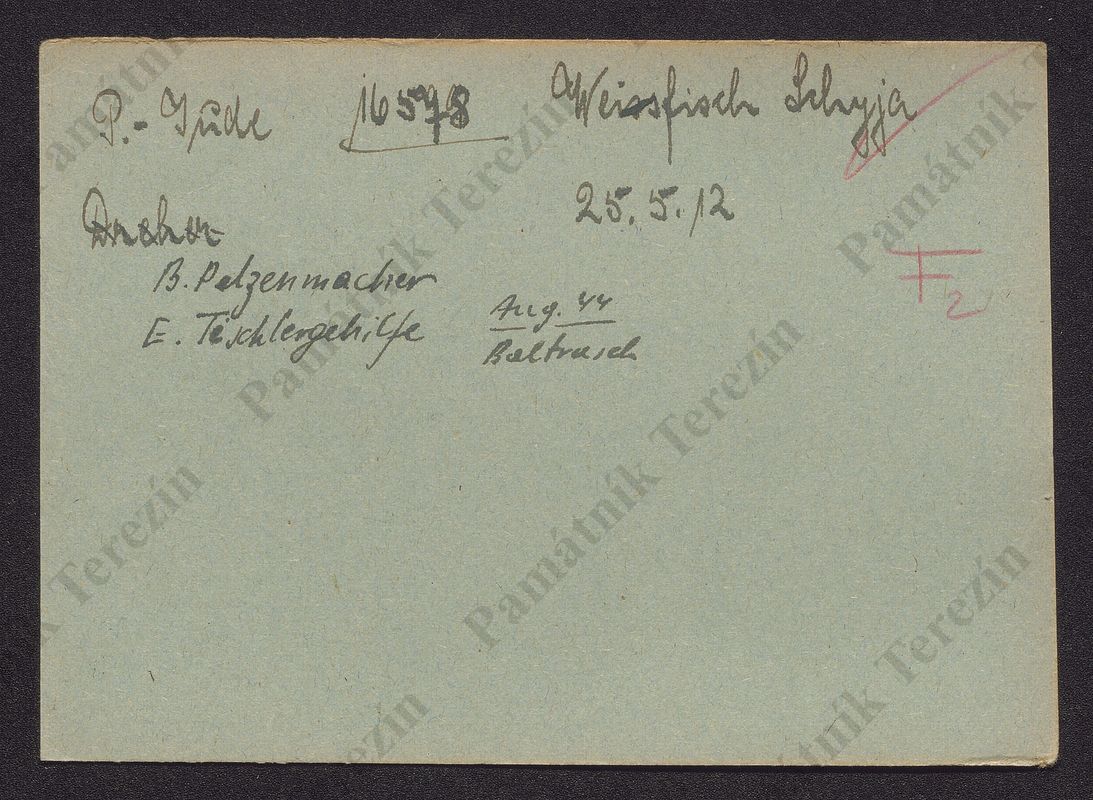 P.- Jude 16578 Weissfisch Schyja
25.5.12
Dreher
B. Pelzenmacher
E. Tischlergehilfe Aug. 44
Baltrusch
F 2
Památník Terezín
Památník Terezín
Památník Terezín
Památník Terezín
Památník Terezín